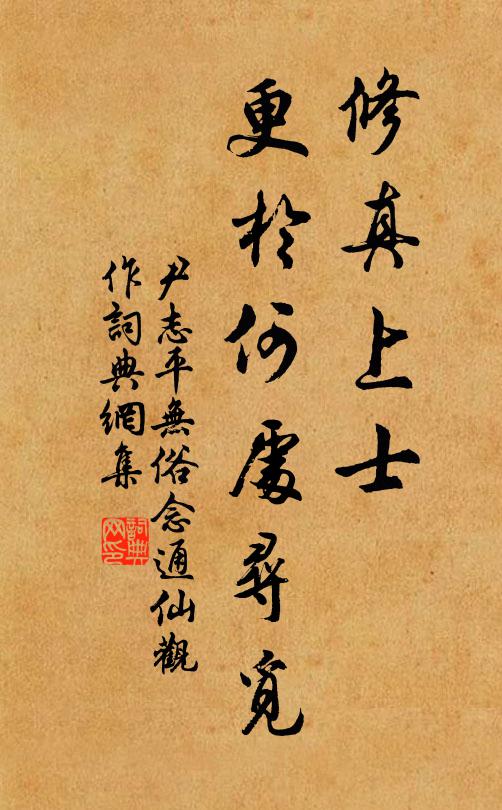 修真上士
更於何處尋覓
尹志平無俗念通仙觀
作詞典網集
詞典
网印